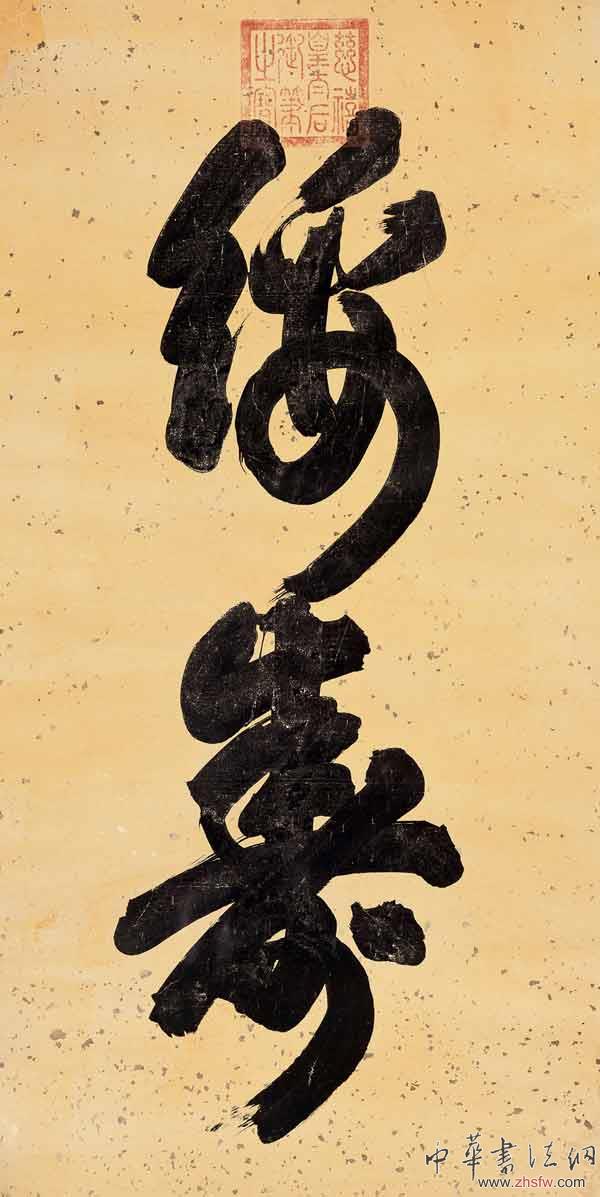 慈禧
皇太后
御筆
之寶
綏
壽
中華書法網
www.zhsfw.com